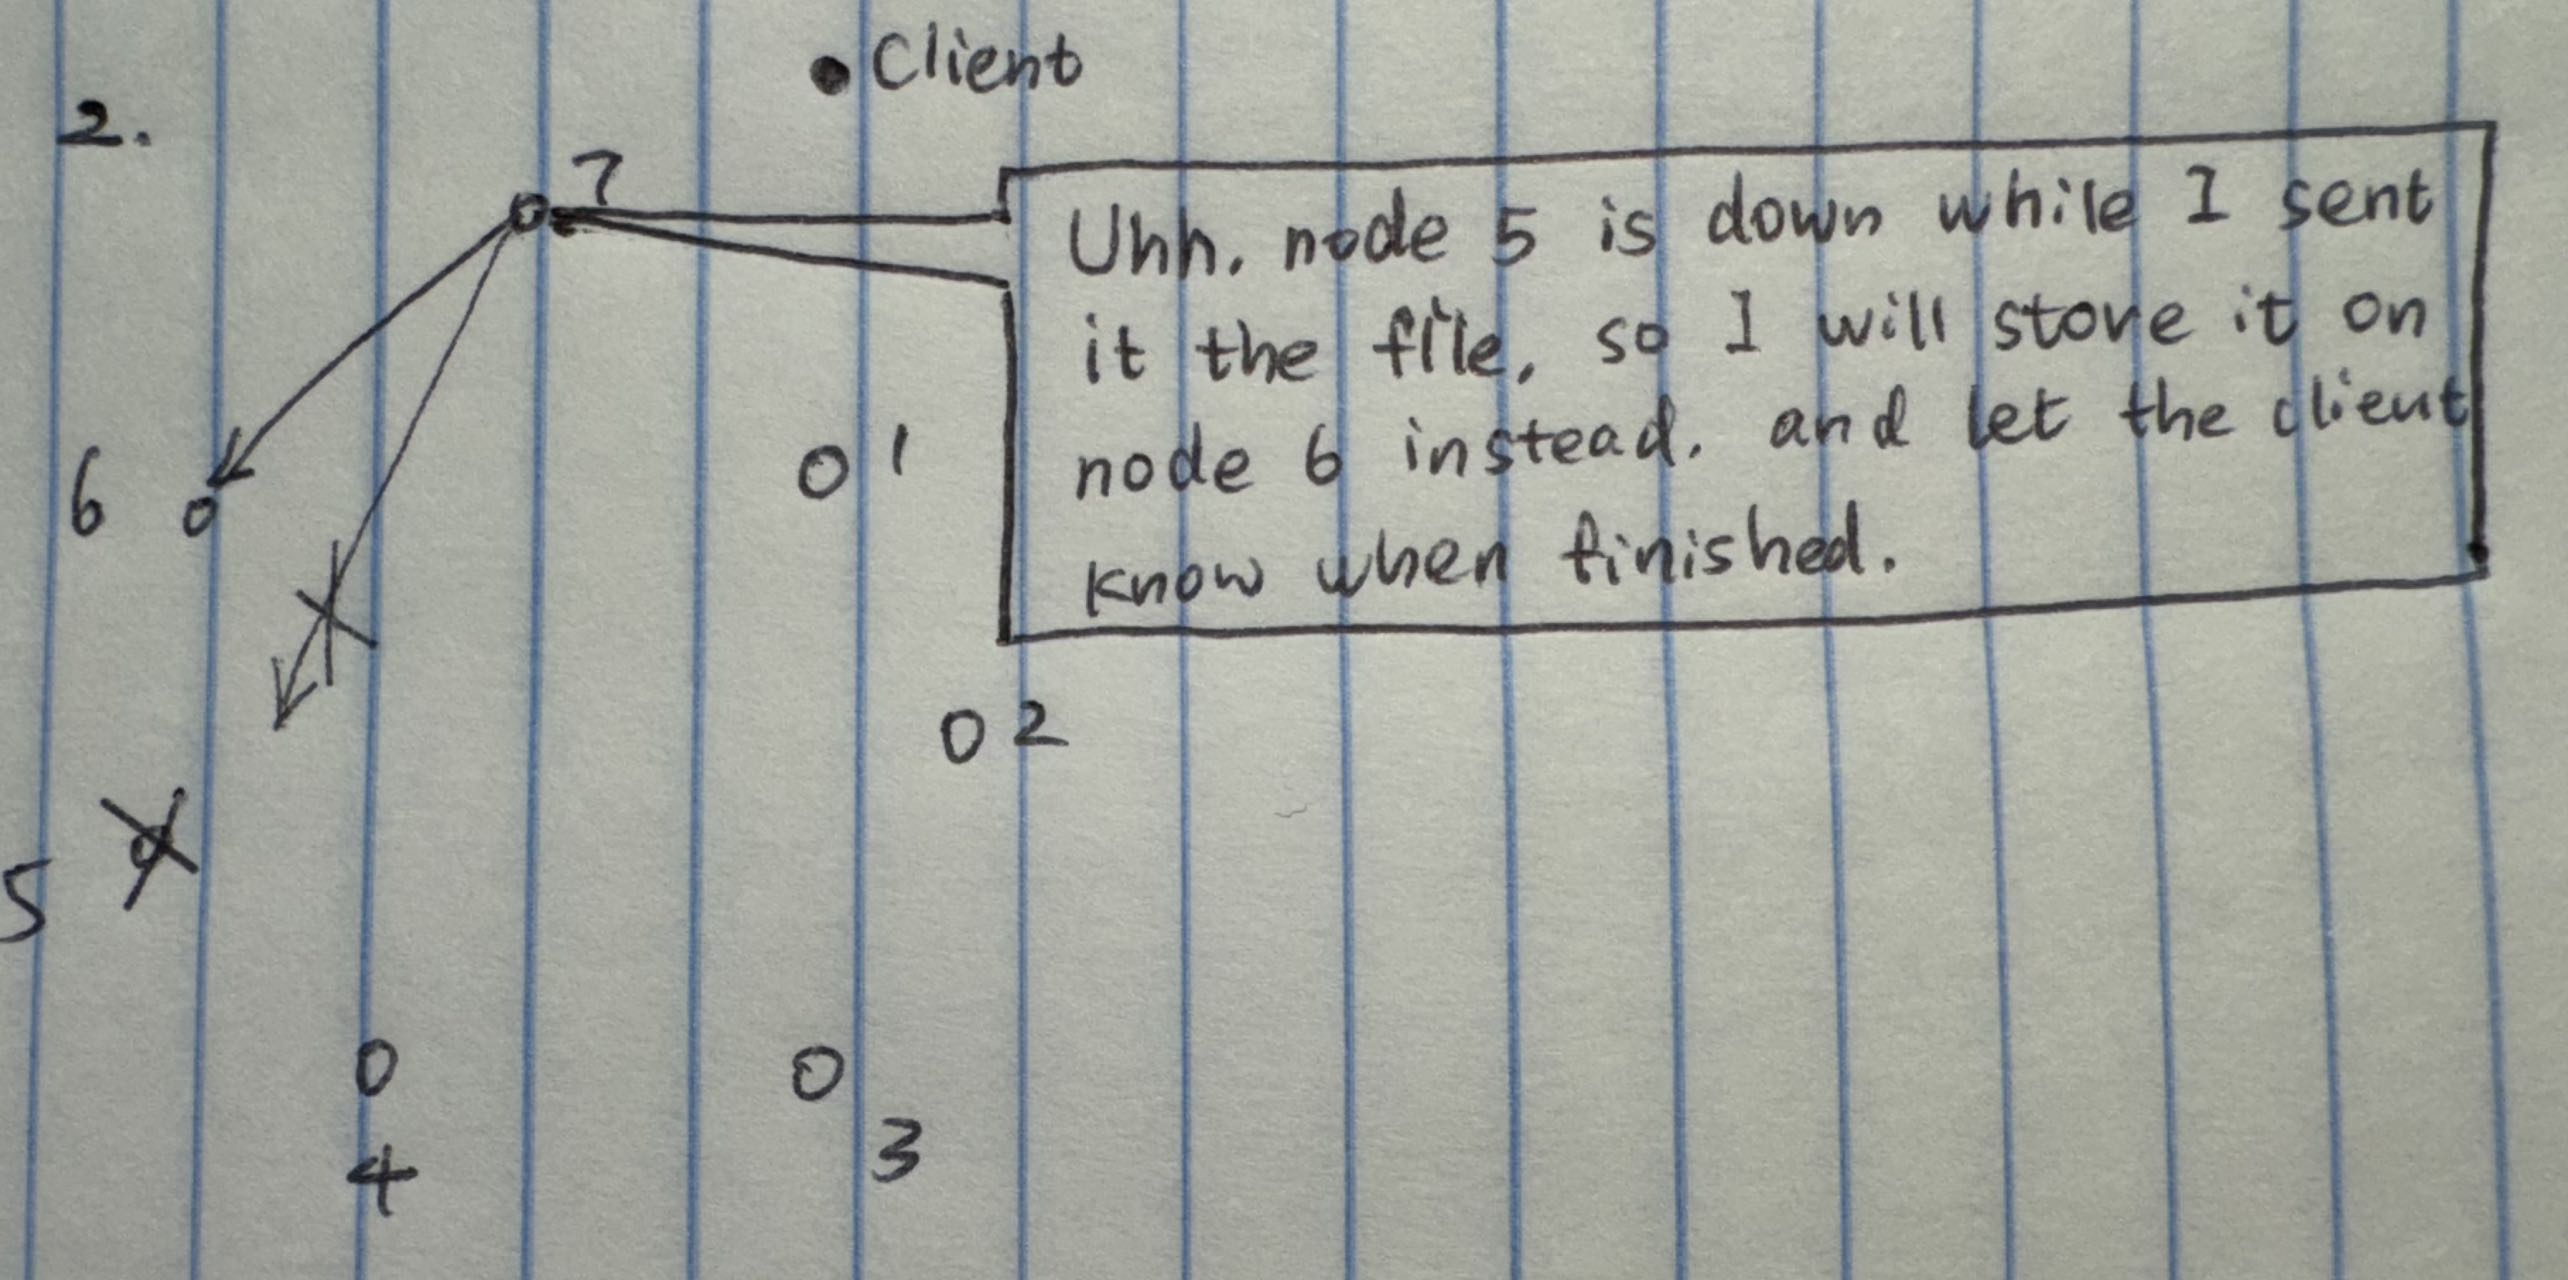 Client
2.
7
Uhh. node 5 is down while I sent
it the file, so I will store it on
node 6 instead. and let the client
know when finished.
6
1
2
5
4
3